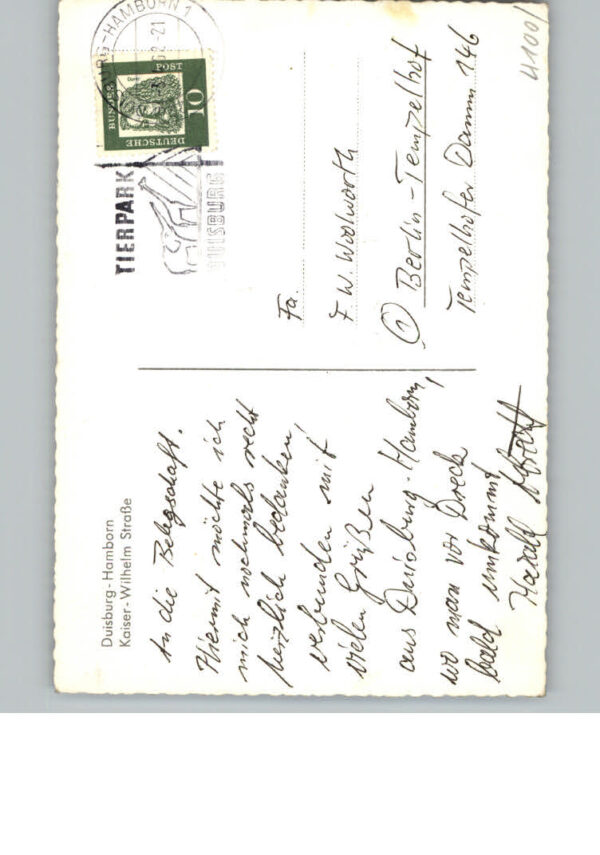 Duisburg-Hamborn
Kaiser-Wilhelm Straße
An die Belegschaft.
Hiermit möchte ich
mich nochmals recht
herzlich bedanken,
verbunden mit
vielen Grüßen
aus Duisburg-Hamborn,
wo man vor Dreck
bald umkommt
Harald
DUISBURG-HAMBORN 1
-21
DEUTSCHE BUNDESPOST
Dürer
10
TIERPARK
DUISBURG
Fa.
F. W. Woolworth
1 Berlin-Tempelhof
Tempelhofer Damm 146
4100/